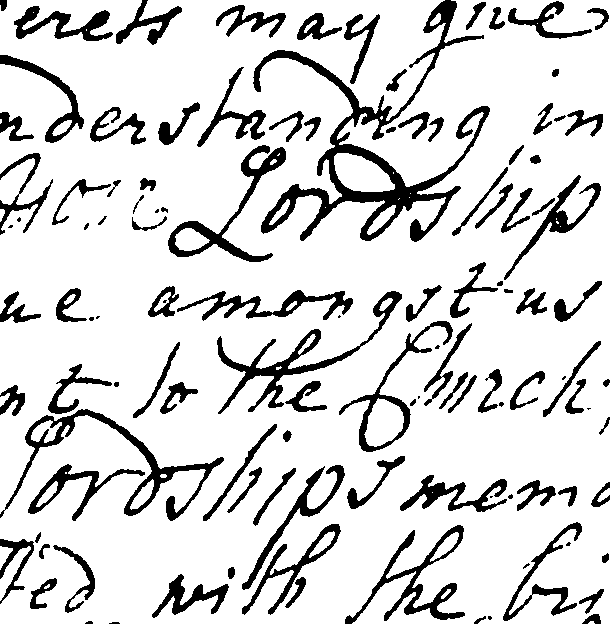 erets may give
nderstanding in
your Lordship
ue amongst us
nt to the Church,
Lordships memo
ted with the bri